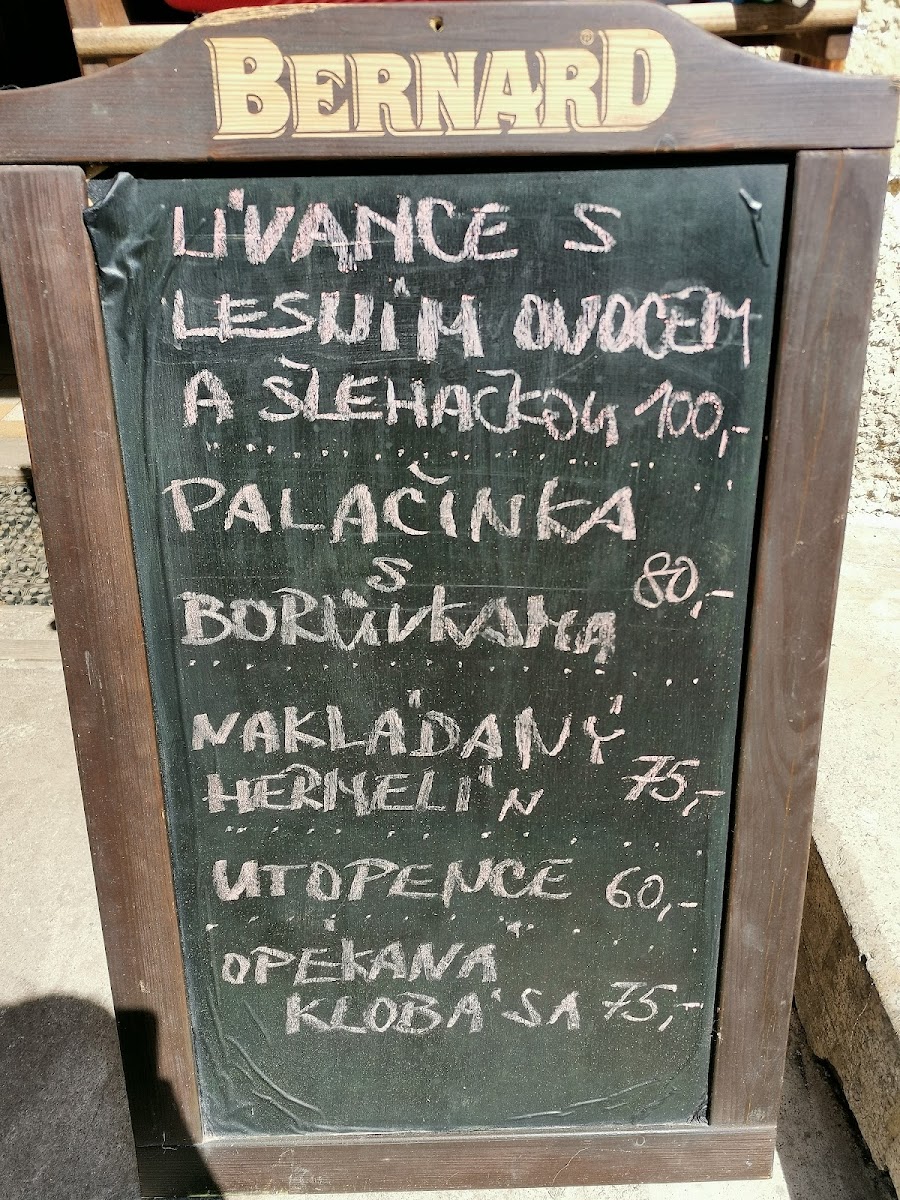 BERNARD®
LÍVANCE S
LESNÍM OVOCEM
A ŠLEHAČKOU 100,-
PALAČINKA
S
BORŮVKAMA 80,-
NAKLÁDANÝ
HERMELÍN 75,-
UTOPENCE 60,-
OPÉKANÁ
KLOBÁSA 75,-